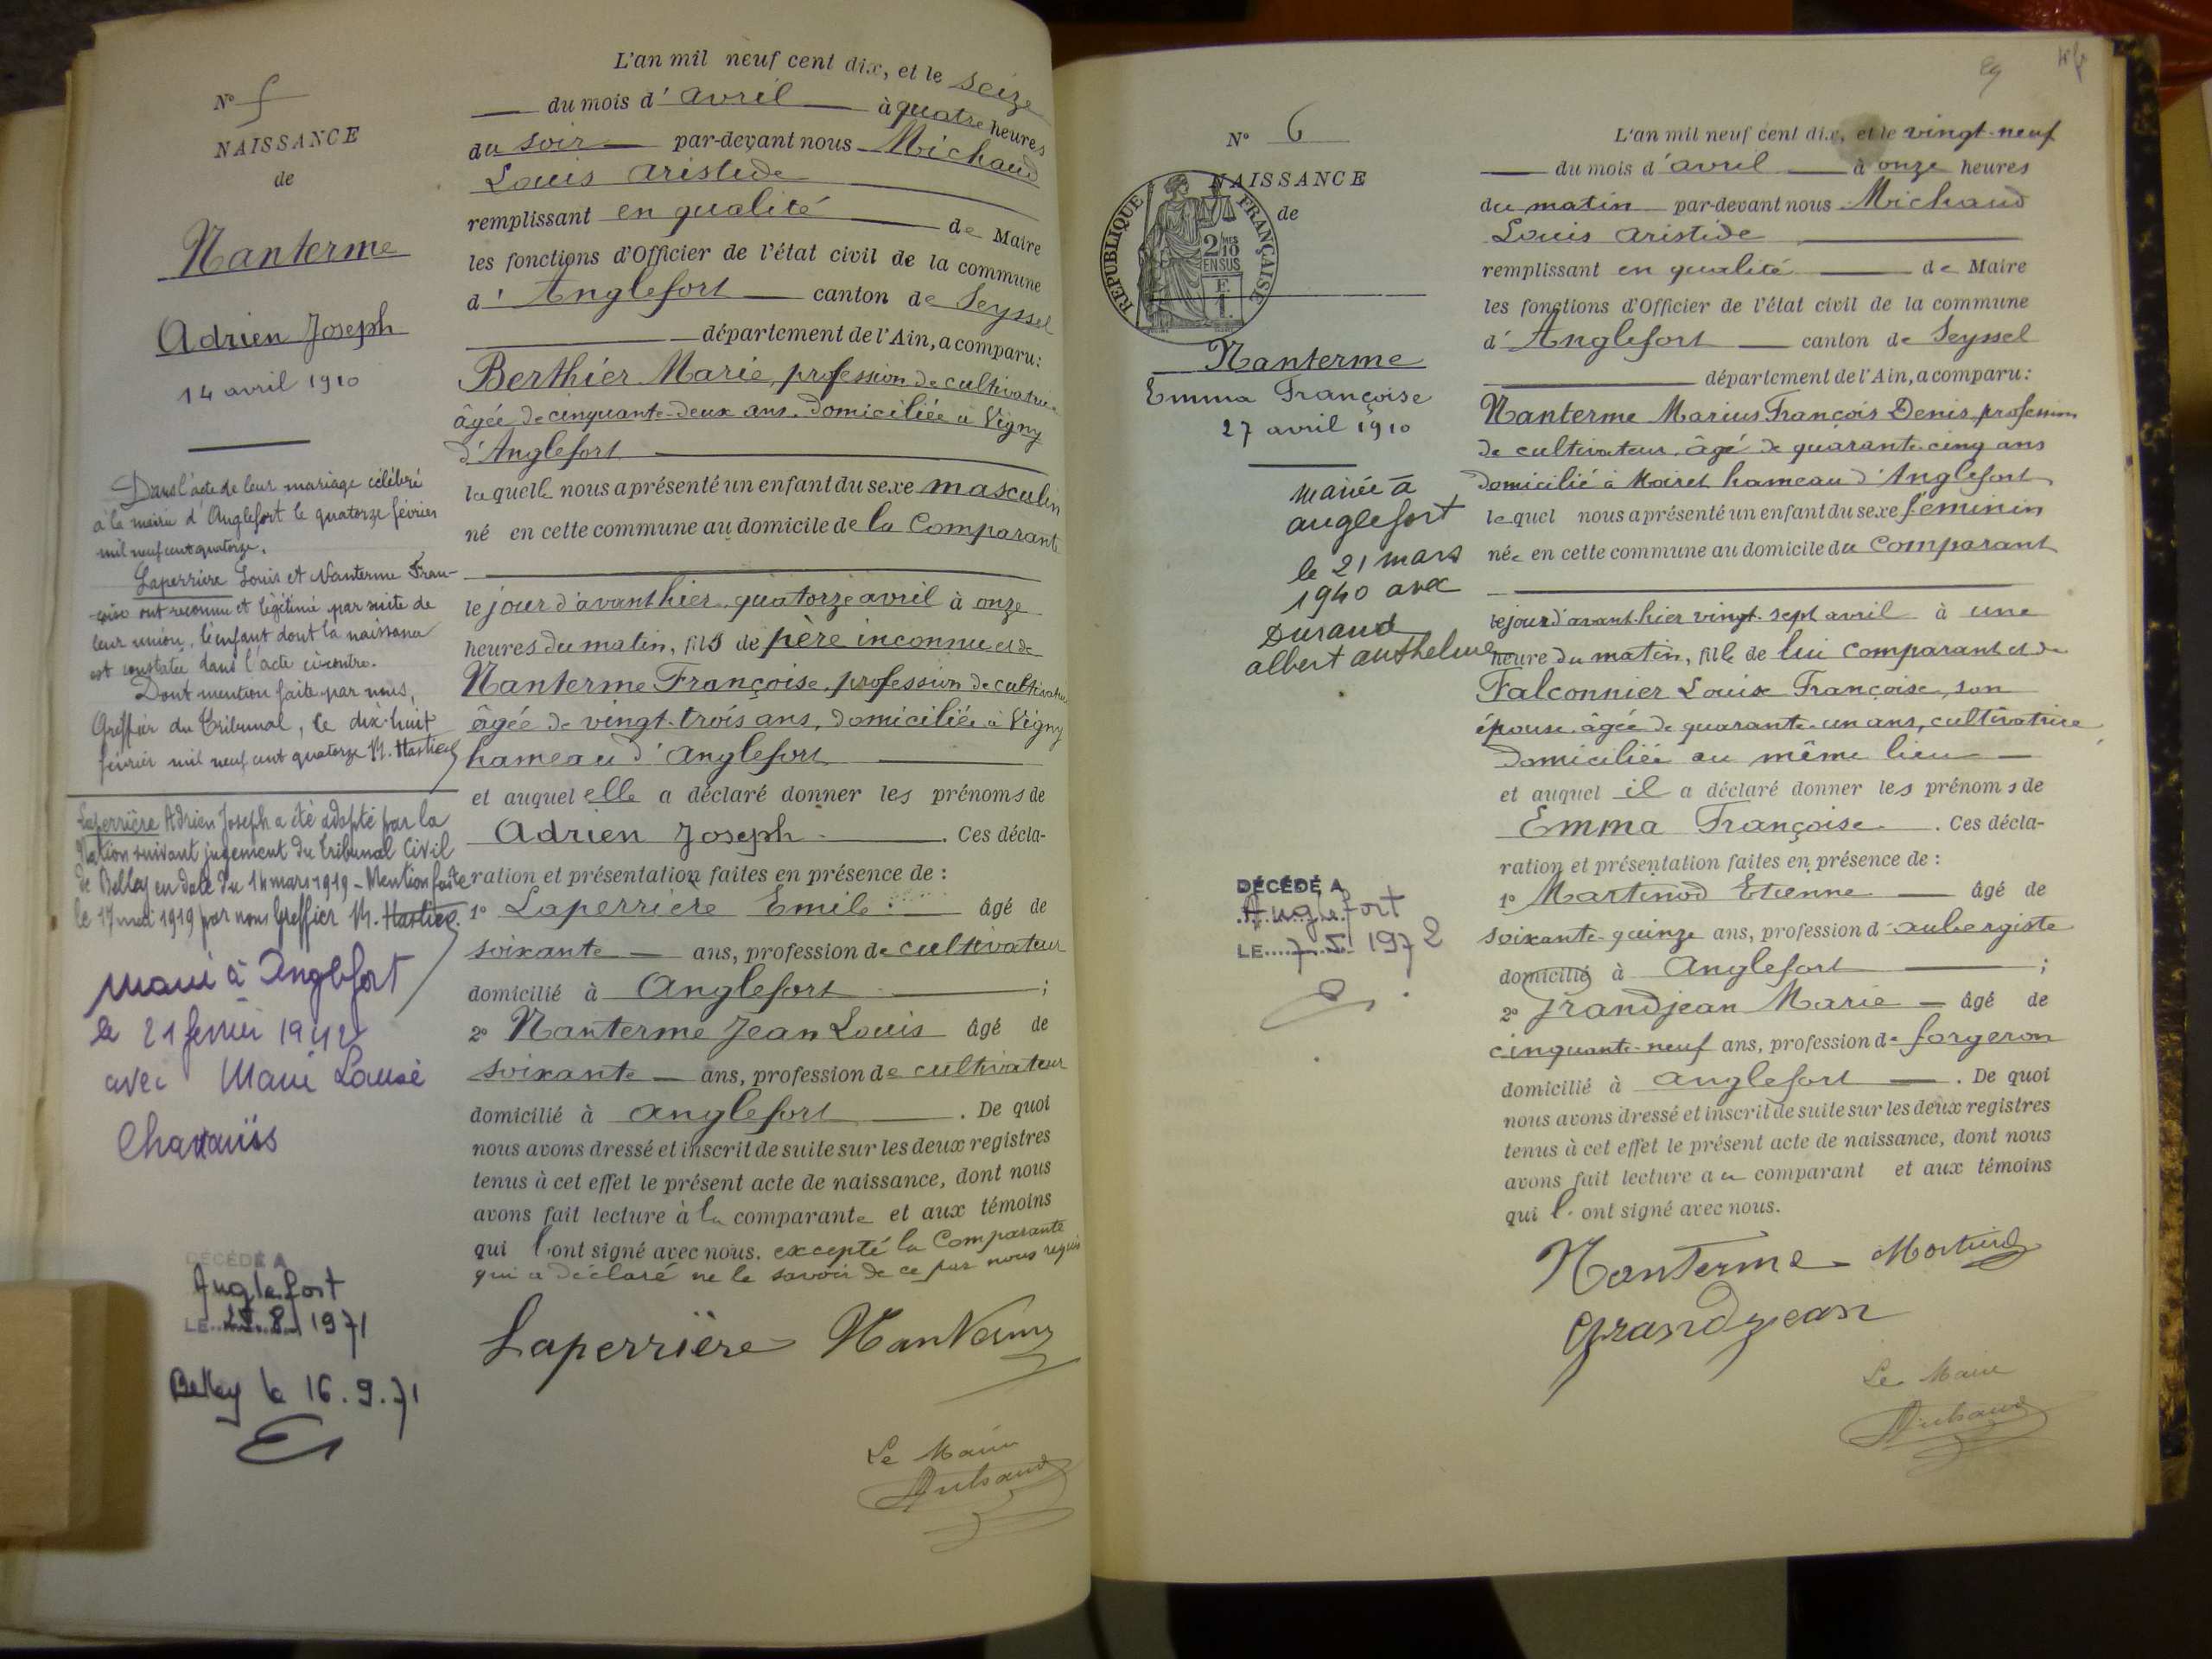 N° 5
NAISSANCE
de
Nanterme
Adrien Joseph
14 avril 1910
Dans l'acte de leur mariage célébré
à la mairie d'Anglefort le quatorze février
mil neuf cent quatorze.
Laperrière Louis et Nanterme Fran-
çoise ont reconnu et légitimé par suite de
leur union, l'enfant dont la naissance
est constatée dans l'acte ci-contre.
Dont mention faite par nous,
Greffier du Tribunal, le dix-huit
février mil neuf cent quatorze M. Hastier
Laperrière Adrien Joseph a été adopté par la
Nation suivant jugement du Tribunal Civil
de Belley en date du 14 mars 1919 - Mention faite
le 17 mai 1919 par nous Greffier M. Hastier
Marié à Anglefort
le 21 février 1942
avec Marie Louise
DÉCÉDÉ A
Anglefort
LE 8 1971
Belley le 16.9.71
L'an mil neuf cent dix, et le seize
du mois d'avril à quatre heures
du soir par-devant nous Michaud
Louis Aristide
remplissant en qualité de Maire
les fonctions d'Officier de l'état civil de la commune
d'Anglefort canton de Seyssel
département de l'Ain, a comparu:
Berthier Marie, profession de cultivatrice
âgée de cinquante-deux ans. domiciliée à Vigny
d'Anglefort
laquelle nous a présenté un enfant du sexe masculin
né en cette commune au domicile de la Comparante
le jour d'avant hier, quatorze avril à onze
heures du matin, fils de père inconnu et de
Nanterme Françoise, profession de cultivatrice
âgée de vingt-trois ans, domiciliée à Vigny
hameau d'Anglefort
et auquel elle a déclaré donner les prénoms de
Adrien Joseph. Ces décla-
ration et présentation faites en présence de :
1° Laperrière Emile âgé de
soixante ans, profession de cultivateur
domicilié à Anglefort ;
2° Nanterme Jean Louis âgé de
soixante ans, profession de cultivateur
domicilié à Anglefort . De quoi
nous avons dressé et inscrit de suite sur les deux registres
tenus à cet effet le présent acte de naissance, dont nous
avons fait lecture à la comparante et aux témoins
qui l'ont signé avec nous. excepté la Comparante
qui a déclaré ne le savoir de ce par nous requis
Laperrière Nanterme
Le Maire
Michaud
N° 6
NAISSANCE
de
RÉPUBLIQUE FRANÇAISE
2/10 MES
EN SUS
F.
1.
Nanterme
Emma Françoise
27 avril 1910
mariée à
anglefort
le 21 mars
1940 avec
Durand
albert anthelme
DÉCÉDÉ A
Anglefort
LE 7. 5. 1972
L'an mil neuf cent dix, et le vingt-neuf
du mois d'avril à onze heures
du matin par-devant nous Michaud
Louis Aristide
remplissant en qualité de Maire
les fonctions d'Officier de l'état civil de la commune
d'Anglefort canton de Seyssel
département de l'Ain, a comparu:
Nanterme Marius François Denis, profession
de cultivateur, âgé de quarante-cinq ans
domicilié à Mairet hameau d'Anglefort
lequel nous a présenté un enfant du sexe féminin
née en cette commune au domicile du Comparant
le jour d'avant-hier vingt-sept avril à une
heure du matin, fille de lui comparant et de
Falconnier Louise Françoise, son
épouse âgée de quarante-un ans, cultivatrice
domiciliée au même lieu
et auquel il a déclaré donner les prénoms de
Emma Françoise. Ces décla-
ration et présentation faites en présence de :
1° Martinod Etienne âgé de
soixante-quinze ans, profession d'aubergiste
domicilié à Anglefort ;
2° Grandjean Marie âgé de
cinquante-neuf ans, profession de forgeron
domicilié à Anglefort . De quoi
nous avons dressé et inscrit de suite sur les deux registres
tenus à cet effet le présent acte de naissance, dont nous
avons fait lecture au comparant et aux témoins
qui l'ont signé avec nous.
Nanterme Martinod
Grandjean
Le Maire
Michaud